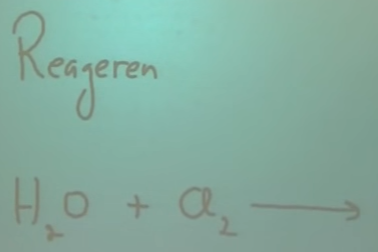 Reageren
H₂O + Cl₂ ⟶